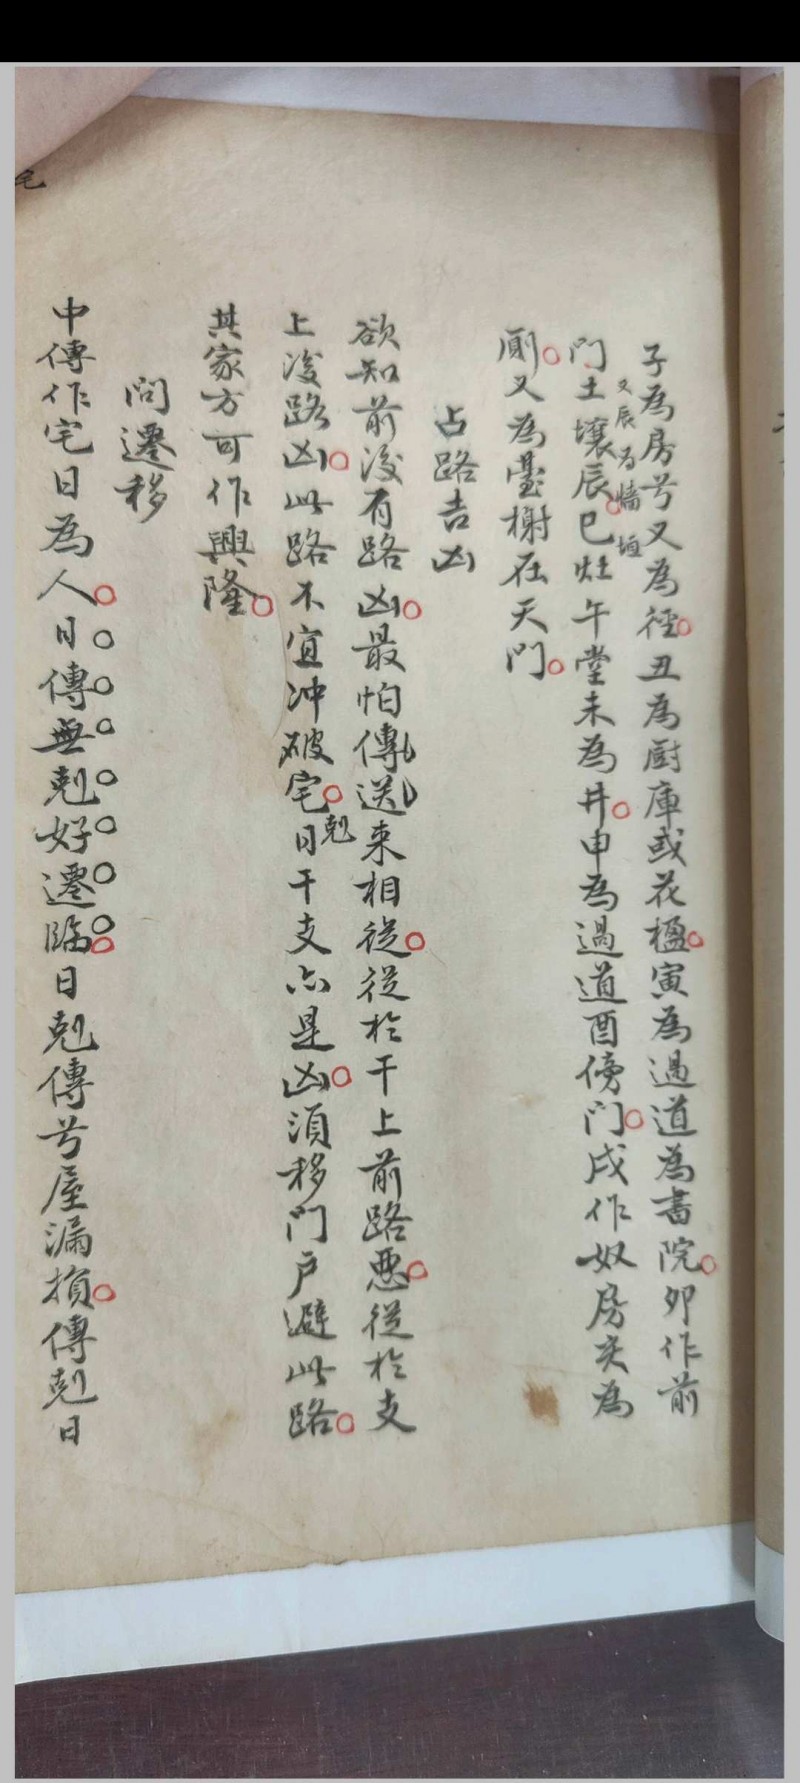 子為房兮又為徑丑為厨庫或花楹寅為過道為書院卯作前
又辰為墻垣
門土壌辰巳灶午堂未為井申為過道酉傍門戌作奴房亥為
厠又為臺榭在天門
占路吉凶
欲知前後有路凶最怕傳送来相從從於干上前路惡從於支
上後路凶此路不宜冲破宅日干支亦是凶須移門户避此路
剋
其家方可作興隆
問遷移
中傳作宅日為人日傳無剋好遷臨日剋傳兮屋漏損傳剋日